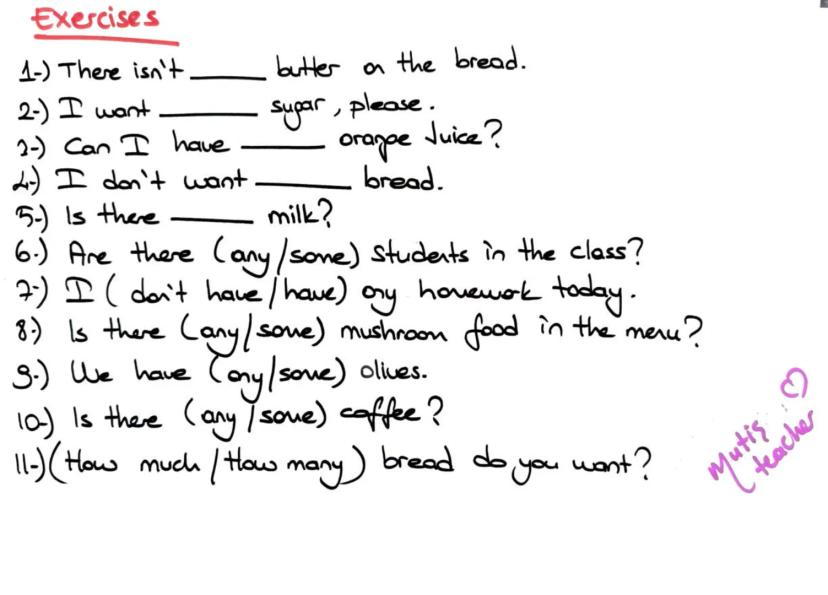 Exercises
1-) There isn't ______ butter on the bread.
2-) I want ______ sugar, please.
3-) Can I have ______ orange Juice?
4-) I don't want ______ bread.
5-) Is there ______ milk?
6-) Are there (any/some) students in the class?
7-) I (don't have/have) any homework today.
8-) Is there (any/some) mushroom food in the menu?
9-) We have (any/some) olives.
10-) Is there (any/some) coffee?
11-) (How much/How many) bread do you want?
Mutiş
teacher